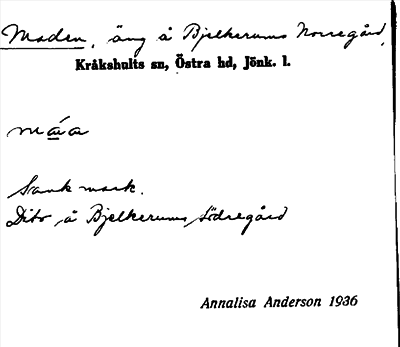 Maden, äng å Bjelkerums Norregård,
Kråkshults sn, Östra hd, Jönk. l.
Sank mark.
Dito å Bjelkerums Södregård
Annalisa Anderson 1936